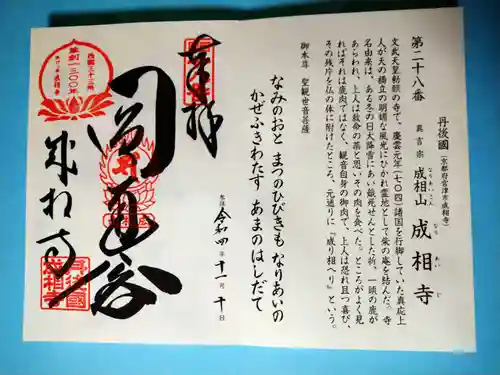 第二十八番
丹後國
(京都府宮津市成相寺)
真言宗 成相山 成相寺
なりあいさん なり あい じ
文武天皇勅願の寺で、慶雲元年(七〇四)諸国を行脚していた真応上
人が天の橋立の明媚な風光にひかれ霊地として柴の庵を結んだ。寺
名由来は、ある冬の日大降雪にあい餓死せんとした折、一頭の鹿が
あらわれ、上人は救命の薬と思いその肉を食べた。ところがよく見
ればそれは鹿肉ではなく、観音自身の御肉で、上人は恐れ且つ喜び、
その残片を仏の体に附けたところ、元通りに『成り相へり』という。
御本尊 聖観世音菩薩
なみのおと まつのひびきも なりあいの
かぜふきわたす あまのはしだて
奉拝
参拝 令和四年十一月十日
西国三十三所
草創一三〇〇年
圓通会
成相寺
丹後國
成相寺